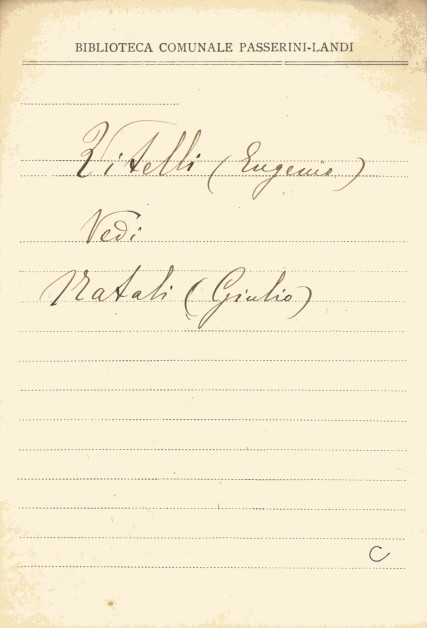 BIBLIOTECA COMUNALE PASSERINI-LANDI
Vitelli (Eugenio)
Vedi
Natali (Giulio)
C